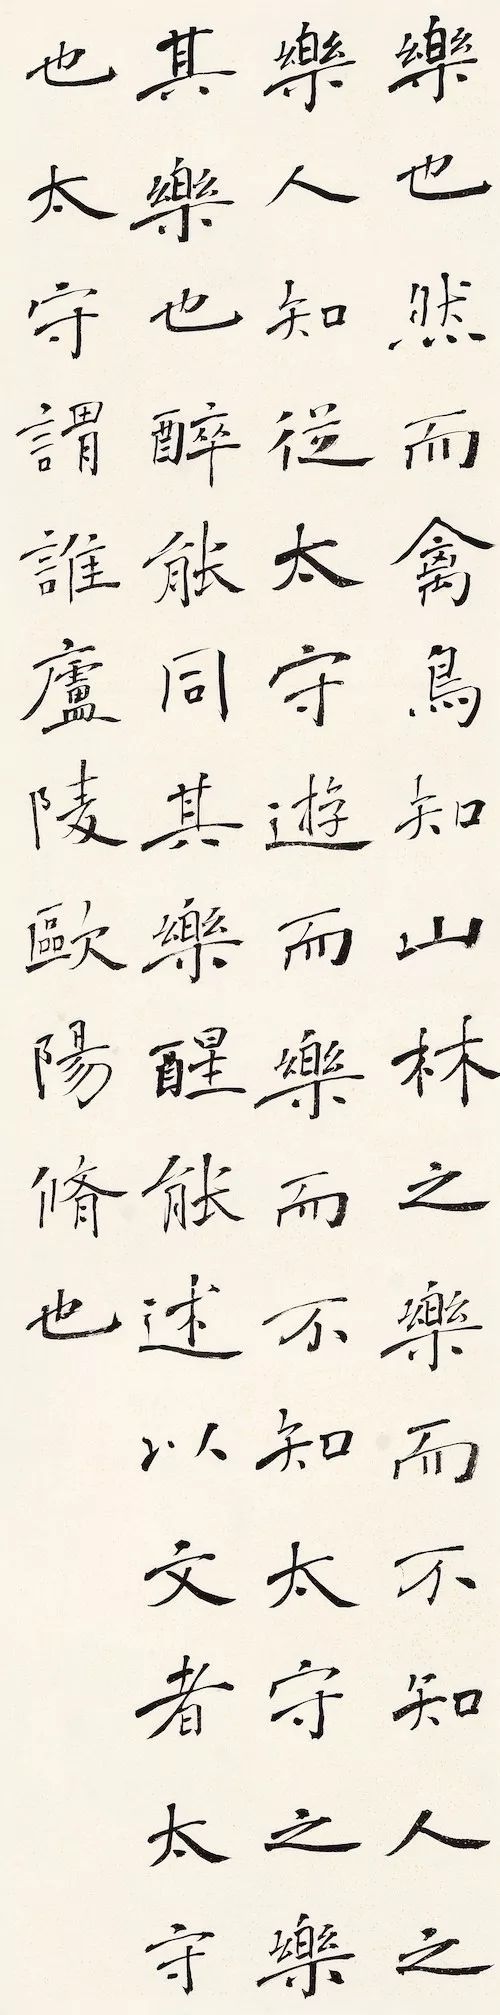 樂也然而禽鳥知山林之樂而不知人之
樂人知從太守遊而樂而不知太守之樂
其樂也醉能同其樂醒能述以文者太守
也太守謂誰廬陵歐陽脩也